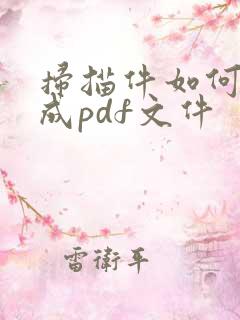 掃描件如何
成pdf文件
雷衛平